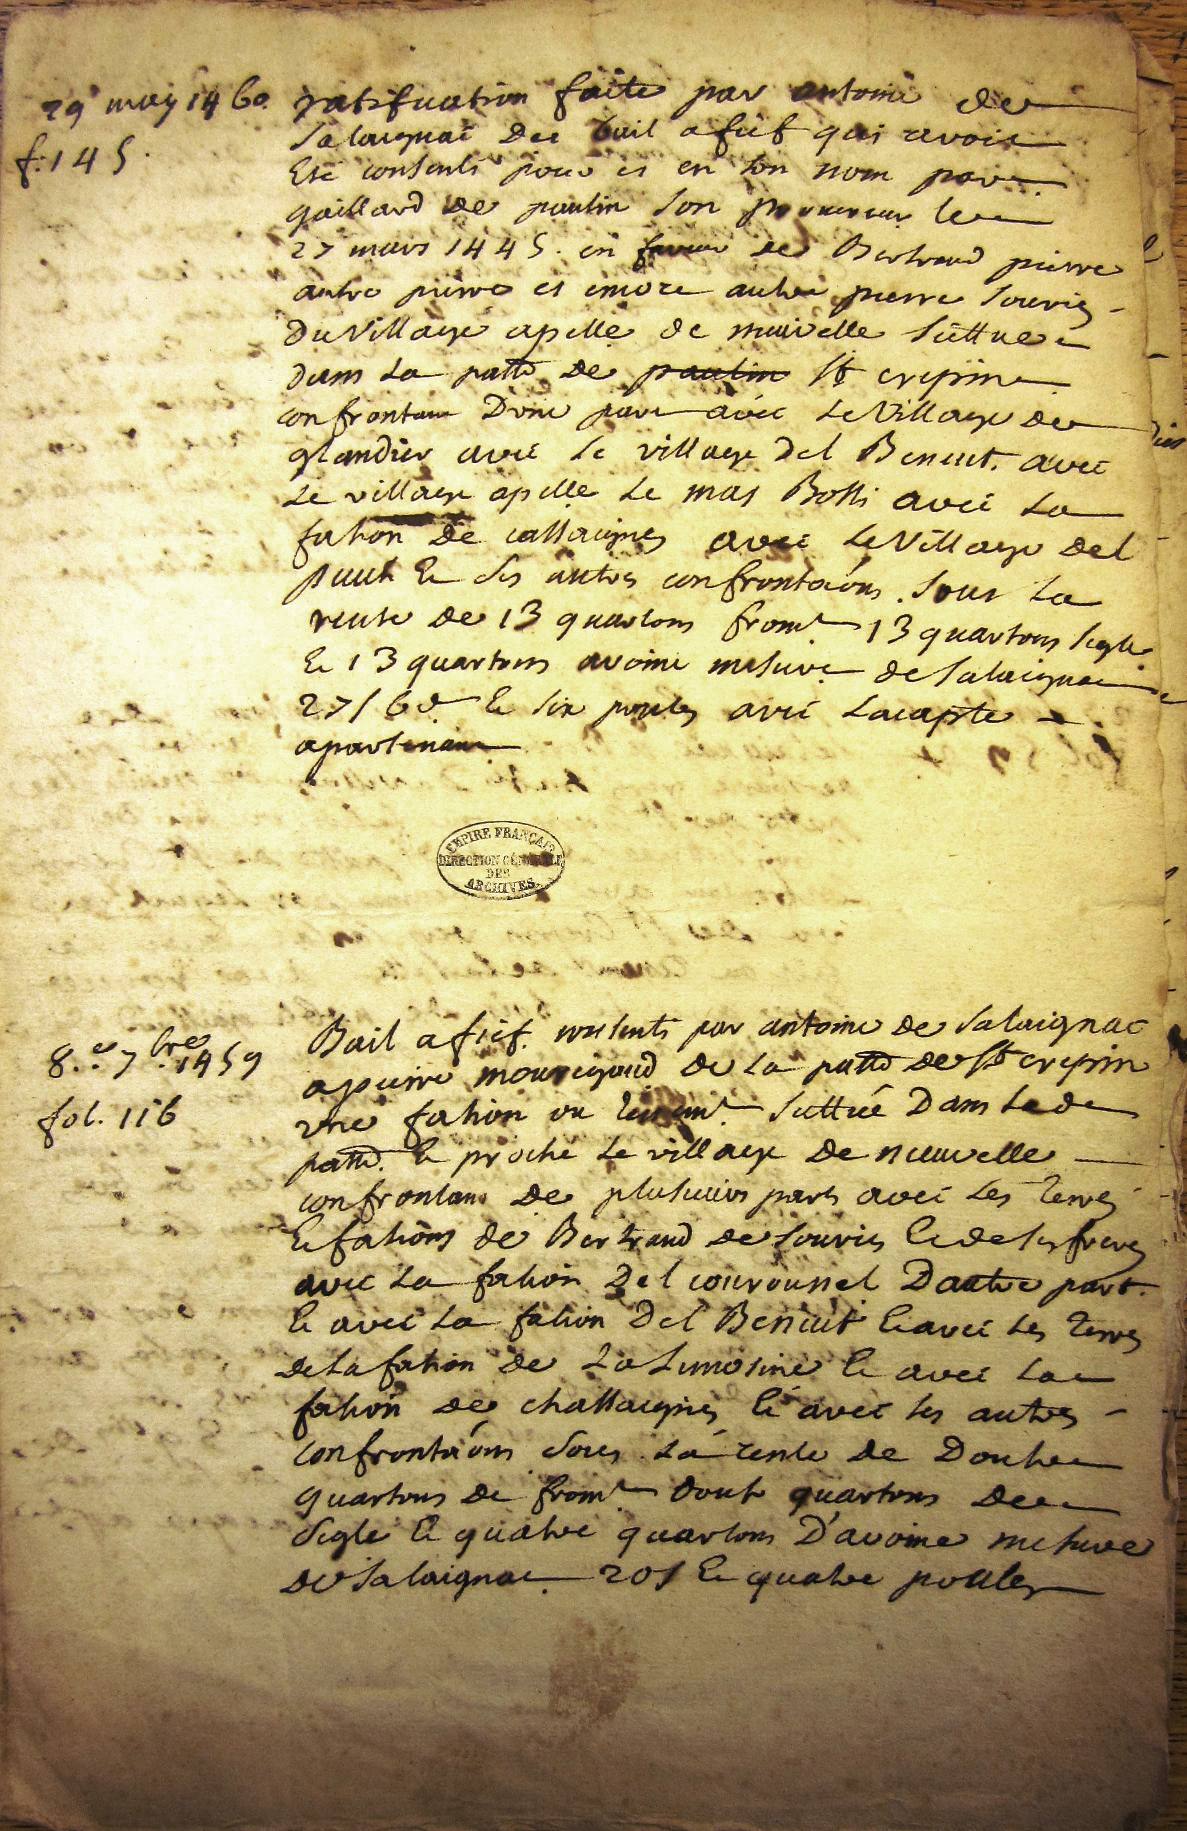 29 may 1460.
f. 145.
ratification faite par antoine de
Salaignac du bail a fief qui avoit
Esté consenti pour et en son nom par
gaillard de paulin son procureur le
27 mars 1445. en faveur de Bertrand pierre
autre pierre et encore autre pierre Souries
Du Village apelle de nuuvelle Scittue
dans La patte de paulin St crepin
confrontant D'une part avec Le Village de
glandier avec le village Del Beneut. avec
Le village apelle Le mas Botti avec La
faħon de callaignes avec Le Village Del
puuh Et ses autres confrontaōns. Sous La
rente de 13 quartons from.t 13 quartons segle
Et 13 quartons avoine mesure de Salaignac
27 s 6 d Et six poules avec Lacapte
apartenant
EMPIRE FRANÇAIS
DIRECTION GÉNÉRALE
DES
ARCHIVES
8.e 7.bre 1459
fol. 116
Bail a fief. consenti par antoine de Salaignac
a pierre mourigaud de La patte de St crepin
une fahon ou tenem.t Scittuée Dans La de
patte. Et proche Le village de nuuvelle
confrontant De plusieurs parts avec Les terres
Et fahons de Bertrand de Souries Et de ses freres
avec La fahon Del couroussel D'autre part.
Et avec La fahon Del Beneut Et avec Les terres
de La fahon de La Limosine Et avec La
fahon de challaignes Et avec les autres
confrontaōns Sous La rente de Douhe
quartons de from.t douh quartons de
segle Et quatre quartons D'avoine mesure
de Salaignac 20 s Et quatre poules